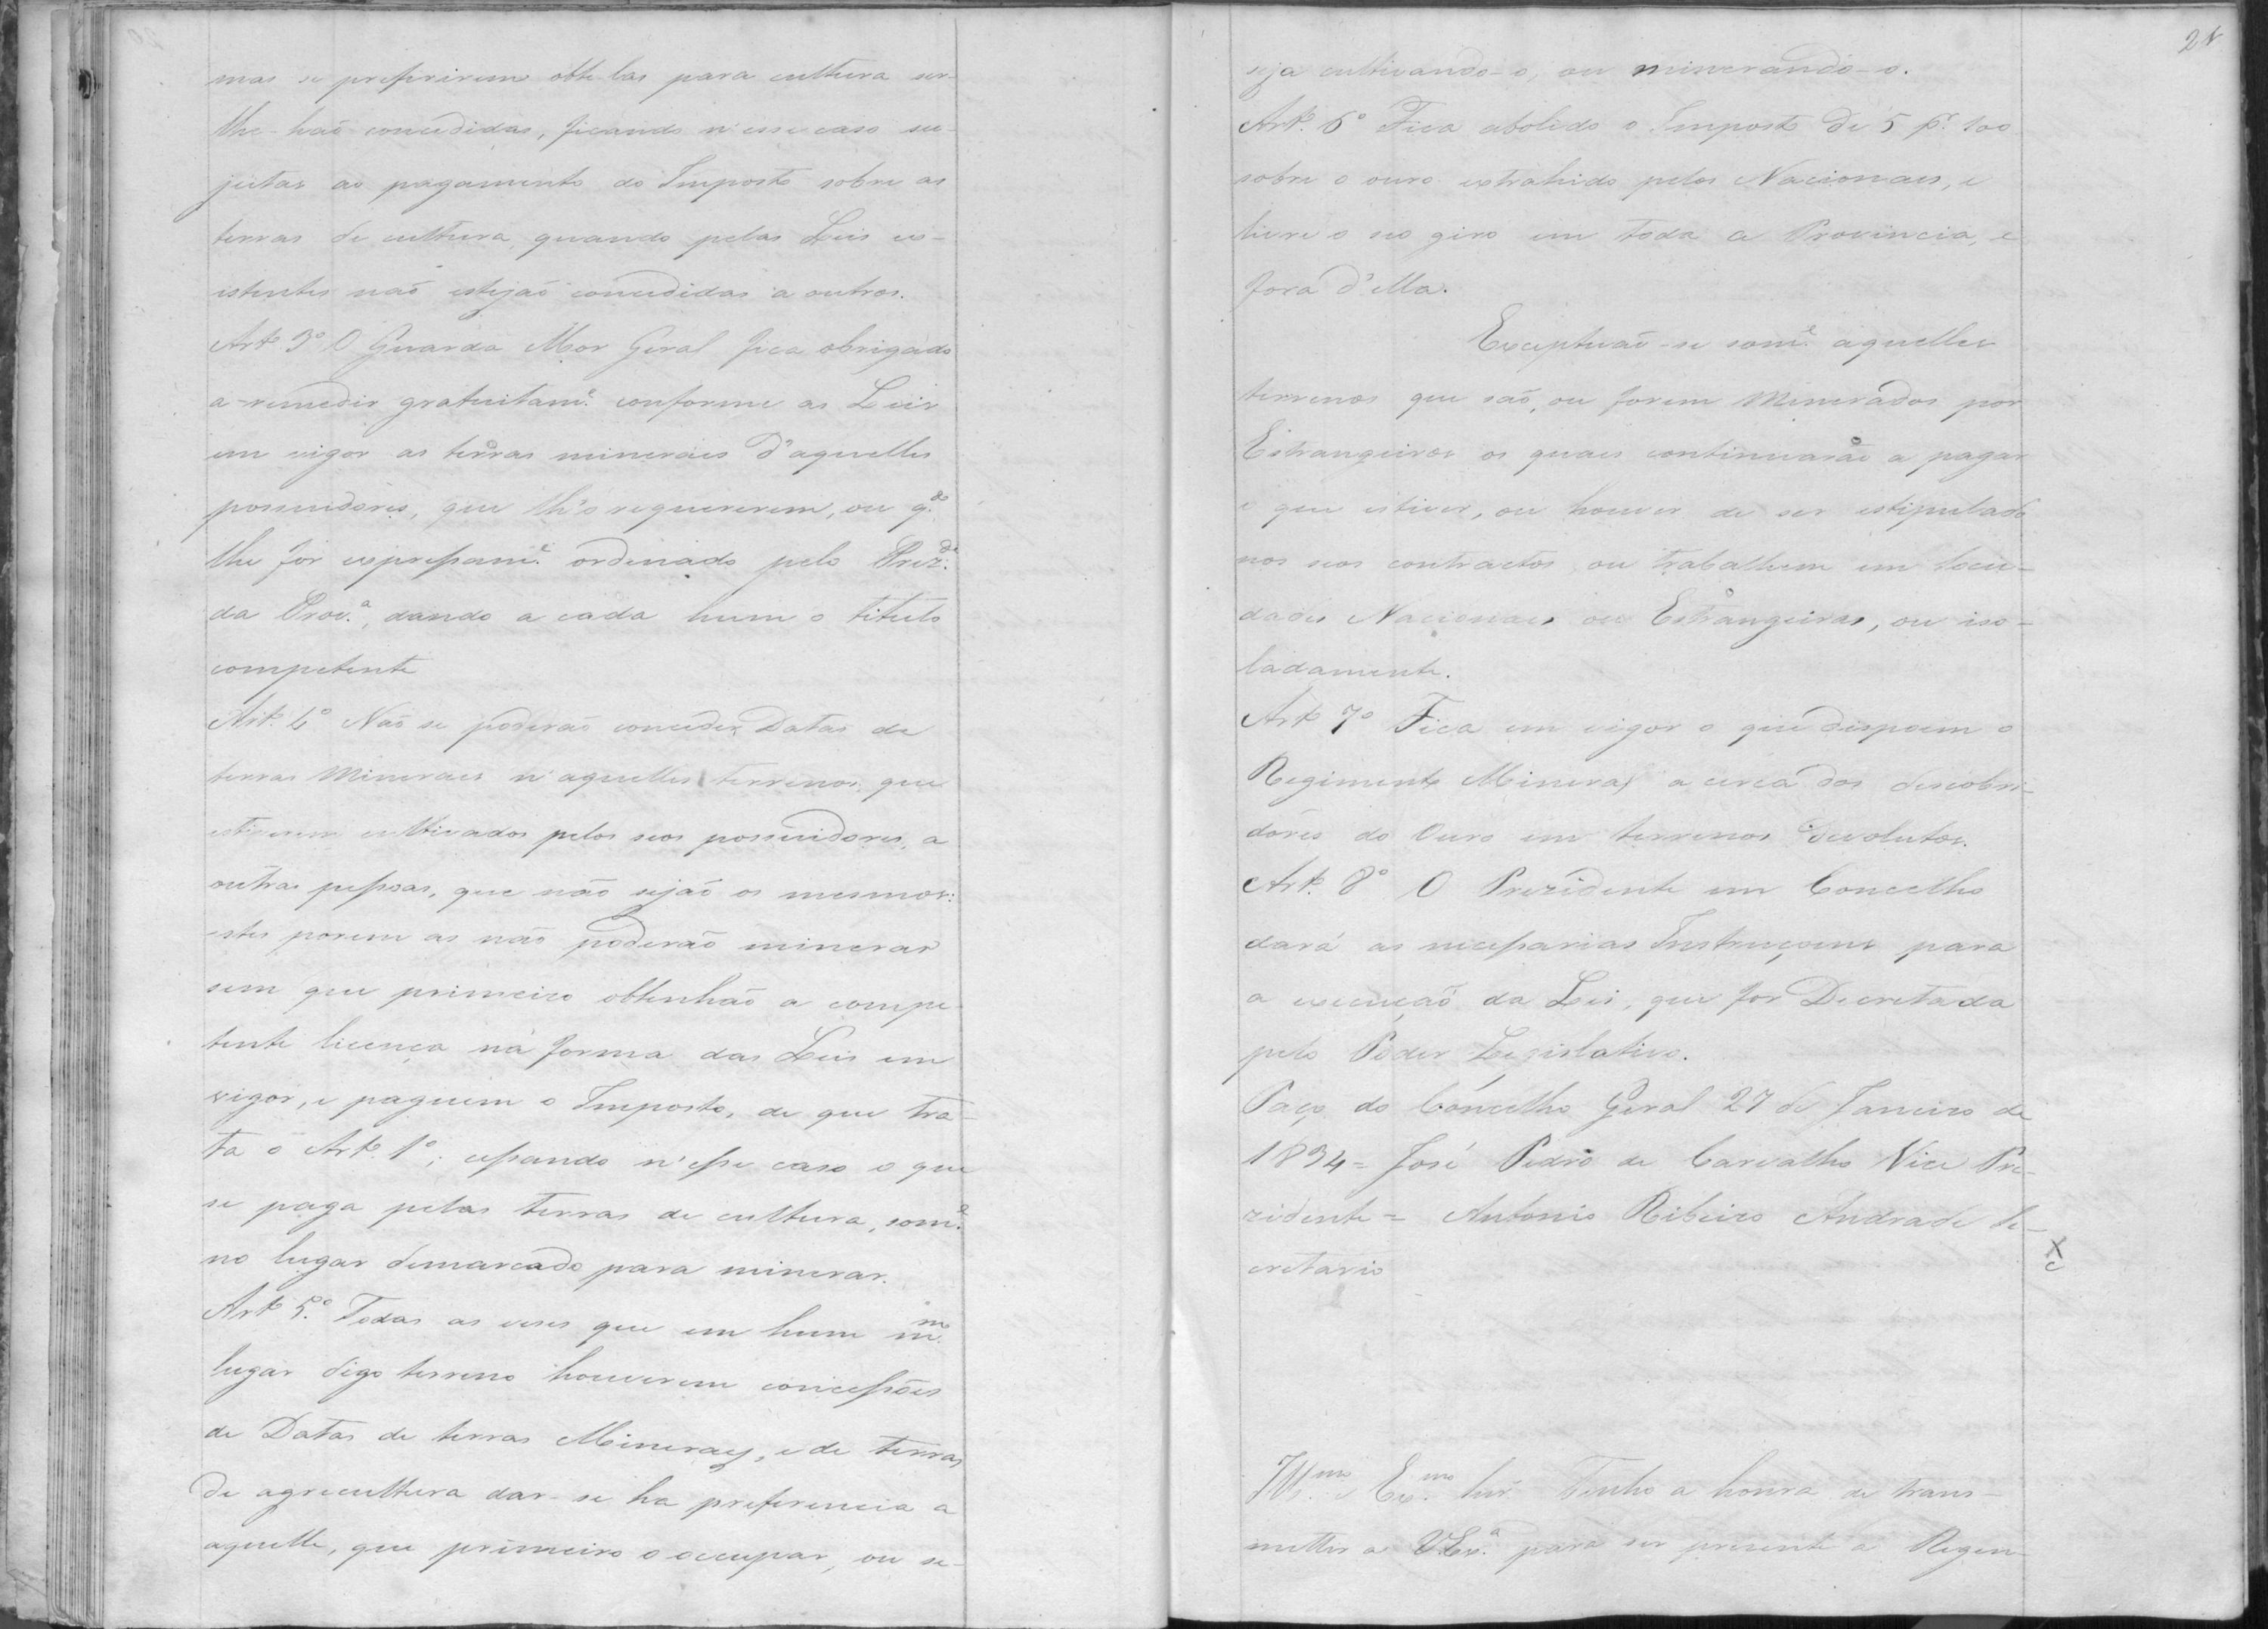 mas se preferirem obte-las para cultura ser-
lhe-haõ concedidas, ficando n'esse caso su-
jeitas ao pagamento do Imposto sobre as
terras de cultura, quando pelas Leis ex-
istentes naõ estejaõ concedidas a outros.
Artº 3º O Guarda Mor Geral fica obrigado
a remedir gratuitamᵉ conforme as Leis
em vigor as terras mineráes d'aquelles
possuidores, que lh'o requererem, ou qᵈᵒ
lhe for expressamᵉ ordenado pelo Prezᵈᵉ
da Provª, dando a cada hum o titulo
competente
Artº 4º Naõ se poderaõ conceder Datas de
terras Mineraes n'aquelles terrenos que
estiverem cultivados pelos seos possuidores, a
outras pessoas, que não sejaõ os mesmos:
estes porem as não poderão minerar
sem que primeiro obtenhão a compe-
tente licença na forma das Leis em
vigor, e paguem o Imposto, de que tra-
ta o Artº 1º; cessando n'esse caso o que
se paga pelas terras de cultura, somᵉ
no lugar demarcado para minerar.
Artº 5º Todas as veses que em hum mᵐᵒ
lugar digo terreno houverem concessões
de Datas de terras Mineraes, e de terras
de agricultura dar-se ha preferencia a
aquelle, que primeiro o occupar, ou se-
21
seja cultivando-o, ou minerando-o.
Artº 6º Fica abolido o Imposto de 5 pʳ 100
sobre o ouro extrahido pelos Nacionaes, e
livre o seo giro em toda a Provincia, e
fora d'ella.
Exceptuaõ-se somᵉ aquelles
terrenos que são, ou forem Minerados por
Estrangeiros os quaes continuarão a pagar
o que estiver, ou houver de ser estipulado
nos seos contractos ou trabalhem em Socie-
dades Nacionaes ou Estrangeiras, ou iso-
ladamente.
Artº 7º Fica em vigor o que dispoem o
Regimento Mineral a cerca dos descobri-
dores do Ouro em terrenos devolutos.
Artº 8º O Prezidente em Concelho
dará as necessarias Instrucçoens para
a execuçaõ da Lei, que for Decretada
pelo Poder Legislativo.
Paço do Concelho Geral 27 de Janeiro de
1834 = José Pedro de Carvalho Vice Pre-
zidente = Antonio Ribeiro Andrade Se-
cretario
Illᵐᵒ e Exᵐᵒ Snr. Tenho a honra de trans-
metter a VExª para ser presente á Regen-